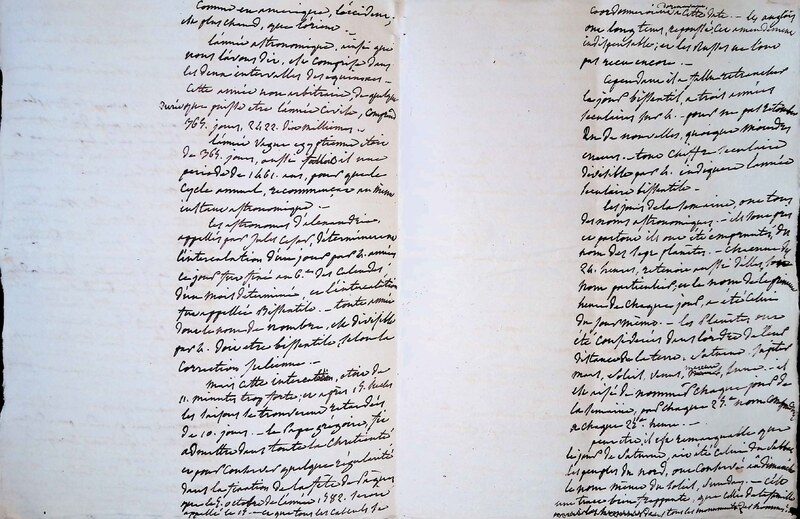 Comme en amérique, l'occident,
est plus chaud, que l'orient.
L'année astronomique, ainsi que
nous l'avons dit, est comprise dans
les deux intervalles des equinoxes —
Cette année non arbitraire de quelque
durée que puisse etre l'année Civile, comprend
365. jours, 2422. dix millièmes. —
L'année vague egyptienne etoit
de 365. jours, aussi falloit il une
periode de 1461. ans, pour que le
Cycle annuel, recommençat au même
instant astronomique. —
Les astronomes d'alexandrie,
appellés par Jules Cesar, déterminèrent
l'intercalation d'un jour par 4. années
ce jour fut fixé au 6.e des Calendes
d'un mois déterminé, et l'intercalation
fut appellée Bissextile. — toute année
dont le nom de nombre, est divisible
par 4. doit etre bissextile, selon la
Correction Julienne. —
Mais cette intercalation, etoit de
11. minutes trop forte; et après 15. siecles
les saisons se trouverent retardées
de 10. jours. — le Pape gregoire, fit
admettre dans toute la Chretienté
et pour Conserver quelque régularité
dans la fixation de la fête de Pâques
que le 5. octobre de l'année 1582. seroit
appellé le 15 — ce que tous les calculs se
coordonneroient à cette date. — les anglois
ont long tems, repoussé; cet amendement
indispensable; et les Russes ne l'ont
pas reçu encore. —
Cependant il a fallu retrancher
le jour bissextil, a trois années
seculaires sur 4. — pour ne pas retomber
dans de nouvelles, quoique moindres
erreurs. — tout chiffre seculaire
divisible par 4. indiquera l'année
seculaire bissextile. —
les jours de la semaine, ont tous
des noms astronomiques. — ils sont pris
ce partout ils ont été empruntés, du
nom des sept planètes. — chacune des
24. heures, retenoit aussi d'elles, son
nom particulier, et le nom de la première
heure de chaque jour, a été Celui
du jour même. — les Planètes, ont
été Considerées dans l'ordre de leur
distance de la terre. Saturne, Jupiter
mars, soleil, venus, mercure, lune. — il
est aisé de nommer chaque jour de
la semaine, par chaque 25.e nom
a chaque 25.e heure. —
peut etre, il est remarquable que
le jour de Saturne, ait été Celui du sabbat
les peuples du nord, ont Conservé à dimanche
le nom même du soleil, Sunday. — c'est
une trace bien frappante, que celles de la famille
dans tous les monumens des hommes.